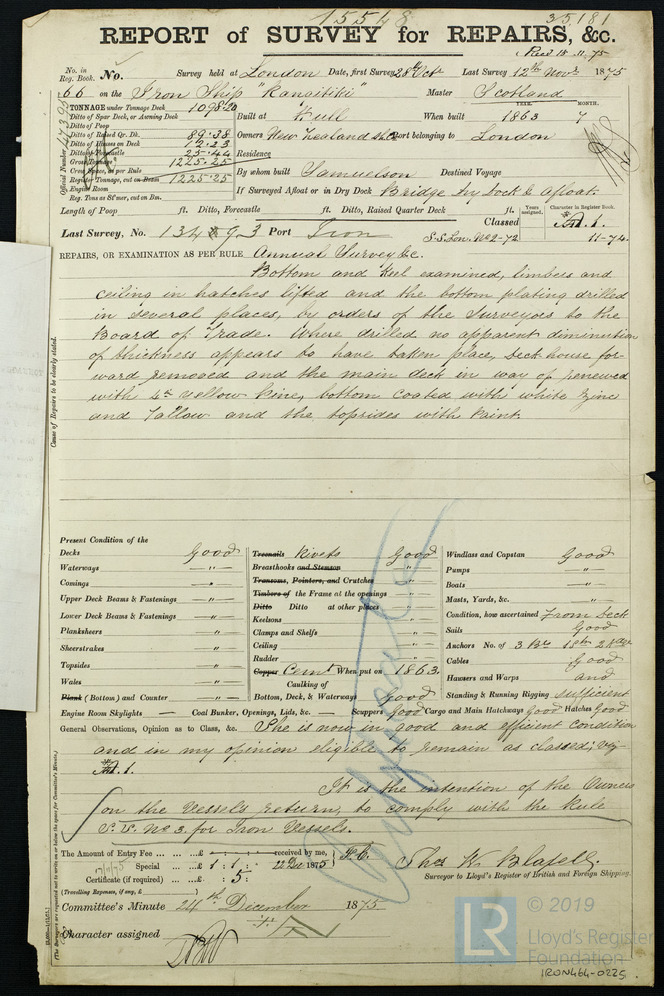 15548
35181
REPORT of SURVEY for REPAIRS, &c.
Rec'd 15.11.75
No. in Reg. Book. No. Survey held at London Date, first Survey 28th Octr Last Survey 12th Novr 1875
66 on the Iron Ship "Ranaitiki" Master Scotland
TONNAGE under Tonnage Deck 1098.20
Ditto of Spar Deck, or Awning Deck
Ditto of Poop
Ditto of Raised Qr. Dk. 89.38
Ditto of Houses on Deck 12.23
Ditto of Forecastle 25.44
Gross Tonnage 1225.25
Crew Space, as per Rule
Register Tonnage, cut on Beam 1225.25
Engine Room
Reg. Tons as St'mer, cut on Bm.
Official Number 47395
Built at Hull When built YEAR. 1863 MONTH. 7
Owners New Zealand S.Co. Port belonging to London
Residence
By whom built Samuelson Destined Voyage
If Surveyed Afloat or in Dry Dock Bridge Dry Dock & afloat.
Length of Poop ft. Ditto, Forecastle ft. Ditto, Raised Quarter Deck ft.
Classed Years assigned. Character in Register Book.
A.1.
11-74
Last Survey, No. 13493 Port Iron S.S. Lon. No 2-72
REPAIRS, OR EXAMINATION AS PER RULE Annual Survey &c.
Bottom and Keel examined, limbers and
ceiling in hatches lifted and the bottom plating drilled
in several places, by orders of the Surveyors to the
Board of Trade. Where drilled no apparent diminution
of thickness appears to have taken place, deck house for-
ward removed and the main deck in way of renewed
with 4in yellow pine, bottom coated with white Zinc
and Tallow and the topsides with paint.
Cause of Repairs to be clearly stated.
Present Condition of the
Decks Good
Waterways "
Comings "
Upper Deck Beams & Fastenings "
Lower Deck Beams & Fastenings "
Planksheers "
Sheerstrakes "
Topsides "
Wales "
Plank (Bottom) and Counter "
Treenails Rivets Good
Breasthooks and Stemson "
Transoms, Pointers, and Crutches "
Timbers of the Frame at the openings "
Ditto Ditto at other places "
Keelsons "
Clamps and Shelfs "
Ceiling "
Rudder "
Copper Cemt When put on 1863.
Caulking of
Bottom, Deck, & Waterways Good
Windlass and Capstan Good
Pumps "
Boats "
Masts, Yards, &c. "
Condition, how ascertained From deck
Sails Good
Anchors No. of 3 Brs 1 Stm 2 Kdge
Cables Good
Hawsers and Warps and
Standing & Running Rigging sufficient
Engine Room Skylights — Coal Bunker, Openings, Lids, &c. — Scuppers Good Cargo and Main Hatchways Good Hatches Good
General Observations, Opinion as to Class, &c. She is now in good and efficient condition
and in my opinion eligible to remain as classed; viz-
A.1.
It is the intention of the Owners
on the Vessels return, to comply with the Rule
S.S. No 3. for Iron Vessels.
The Amount of Entry Fee ... £ : : received by me,
Special ... £ 1 : 1 : 22 Dec 1875
Certificate (if required) .. £ : 5 :
(Travelling Expenses, if any, £ )
Thos W. Blabell.
Surveyor to Lloyd's Register of British and Foreign Shipping.
Committee's Minute 24th December 1875
Character assigned
© 2019
LR
Lloyd's Register
Foundation
IRON464-0225